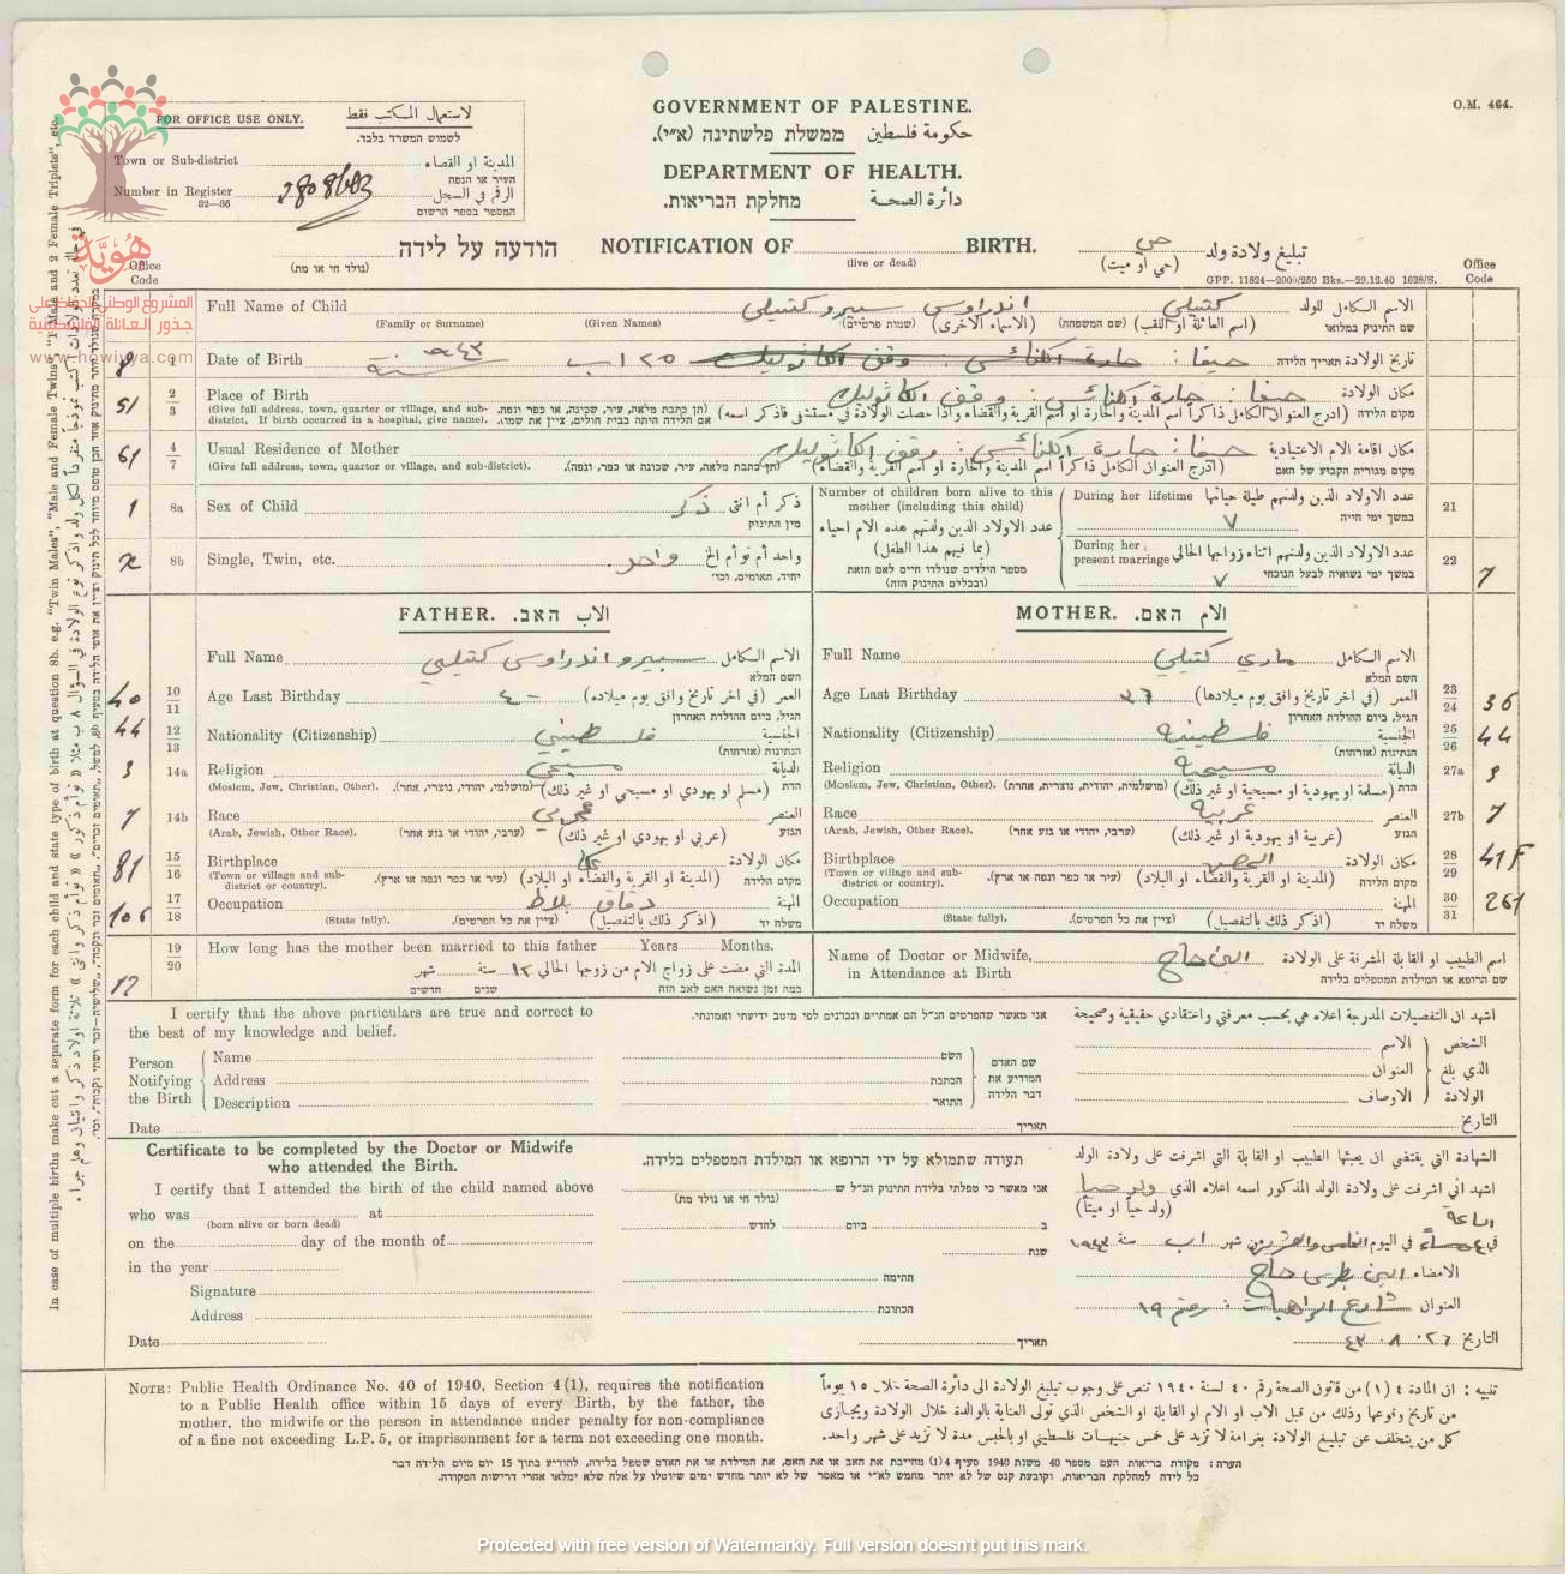 O.M. 464.
GOVERNMENT OF PALESTINE.
حكومة فلسطين ממשלת פלשתינה (א״י).
DEPARTMENT OF HEALTH.
دائرة الصحة מחלקת הבריאות.
FOR OFFICE USE ONLY. لاستعمال المكتب فقط
לשמוש המשרד בלבד.
Town or Sub-district المدينة او القضاء
העיר או הנפה
Number in Register 2808603 الرقم في السجل
32—36 המספר בספר הרשום
הודעה על לידה NOTIFICATION OF BIRTH. تبليغ ولادة ولد حي
(נולד חי או מת) (live or dead) (حي او ميت)
GPP. 11824—2000/250 Bks.—29.12.40 1628/S.
Office Code Office Code
هُويّة
المشروع الوطني للحفاظ على
جذور العائلة الفلسطينية
www.howiyya.com
Full Name of Child كتيلي اندراوس سبيرو كتيلي الاسم الكامل للولد
(Family or Surname) (Given Names) (שמות פרטיים) (الاسماء الاخرى) (שם המשפחה) (اسم العائلة او اللقب) שם התינוק במלואו
8 1 Date of Birth حيفا : حارة الكنائس : وقف الكاثوليك ٢٥ اب سنة ٩٤٣ تاريخ الولادة תאריך הלידה
51 2 3 Place of Birth حيفا : حارة الكنائس : وقف الكاثوليك مكان الولادة
(Give full address, town, quarter or village, and sub-district. If birth occurred in a hospital, give name). (תן כתבת מלאה, עיר, שכונה, או כפר ונפה. אם הלידה היתה בבית חולים, ציין את שמו). (ادرج العنوان الكامل ذاكراً اسم المدينة والحارة او اسم القرية والقضاء واذا حصلت الولادة في مستشفى فاذكر اسمه) מקום הלידה
61 4 7 Usual Residence of Mother حيفا : حارة الكنائس : وقف الكاثوليك مكان اقامة الام الاعتيادية
(Give full address, town, quarter or village, and sub-district). (תן כתבת מלאה, עיר, שכונה או כפר, ונפה). (ادرج العنوان الكامل ذاكراً اسم المدينة والحارة او اسم القرية والقضاء) מקום מגוריה הקבוע של האם
1 8a Sex of Child ذكر ذكر أم انثى
מין התינוק
2 8b Single, Twin, etc. واحد واحد أم توأم الخ
יחיד, תאומים, וכו׳
Number of children born alive to this mother (including this child)
عدد الاولاد الذين ولدتهم هذه الام احياء (بما فيهم هذا الطفل)
מספר הילדים שנולדו חיים לאם הזאת (ובכללים התינוק הזה)
During her lifetime عدد الاولاد الذين ولدتهم طيلة حياتها 21
٧ במשך ימי חייה
During her present marriage عدد الاولاد الذين ولدتهم اثناء زواجها الحالي 22 7
٧ במשך ימי נשואיה לבעל הנוכחי
FATHER. الاب האב.
Full Name سبيرو اندراوس كتيلي الاسم الكامل
השם המלא
40 10 11 Age Last Birthday ٤٠ العمر (في اخر تاريخ وافق يوم ميلاده)
הגיל, ביום ההולדת האחרון
44 12 13 Nationality (Citizenship) فلسطيني الجنسية
הנתינות (אזרחות)
3 14a Religion مسيحي الديانة
(Moslem, Jew, Christian, Other). (מושלמי, יהודי, נוצרי, אחר). (مسلم او يهودي او مسيحي او غير ذلك) הדת
7 14b Race العنصر
(Arab, Jewish, Other Race). (ערבי, יהודי או גזע אחר) (عربي او يهودي او غير ذلك) הגזע
81 15 16 Birthplace عكا مكان الولادة
(Town or village and sub-district or country). (עיר או כפר ונפה או ארץ). (المدينة او القرية والقضاء او البلاد) מקום הלידה
106 17 18 Occupation دقاق بلاط المهنة
(State fully). (ציין את כל הפרטים). (اذكر ذلك بالتفصيل) משלח יד
MOTHER. الام האם.
Full Name ماري كتيلي الاسم الكامل
השם המלא
Age Last Birthday ٣٦ العمر (في اخر تاريخ وافق يوم ميلادها) 23 24 36
הגיל, ביום ההולדת האחרון
Nationality (Citizenship) فلسطينية الجنسية 25 26 44
הנתינות (אזרחות)
Religion مسيحية الديانة 27a 3
(Moslem, Jew, Christian, Other). (מושלמית, יהודית, נוצרית, אחרת). (مسلمة او يهودية او مسيحية او غير ذلك) הדת
Race عربية العنصر 27b 7
(Arab, Jewish, Other Race). (ערבי, יהודי או גזע אחר) (عربية او يهودية او غير ذلك) הגזע
Birthplace مكان الولادة 28 29 41F
(Town or village and sub-district or country). (עיר או כפר ונפה או ארץ). (المدينة او القرية والقضاء او البلاد) מקום הלידה
Occupation المهنة 30 31 261
(State fully). (ציין את כל הפרטים). (اذكر ذلك بالتفصيل) משלח יד
12 19 20 How long has the mother been married to this father Years Months.
المدة التي مضت على زواج الام من زوجها الحالي ١٢ سنة شهر
כמה זמן נשואה האם לאב הזה שנים חדשים
Name of Doctor or Midwife, in Attendance at Birth الين حاج اسم الطبيب او القابلة المشرفة على الولادة
שם הרופא או המילדת המטפלים בלידה
I certify that the above particulars are true and correct to the best of my knowledge and belief.
אני מאשר שהפרטים הנ״ל הם אמתיים ונכונים לפי מיטב ידיעתי ואמונתי.
اشهد ان التفصيلات المدرجة اعلاه هي بحسب معرفتي واعتقادي حقيقية وصحيحة
Person Notifying the Birth Name השם שם האדם المودיע את דבר הלידה الاسم الشخص
Address הכתבת العنوان الذي بلغ
Description התואר الاوصاف الولادة
Date תאריך التاريخ
Certificate to be completed by the Doctor or Midwife who attended the Birth.
תעודה שתמולא על ידי הרופא או המילדת המטפלים בלידה.
الشهادة التي يقتضي ان يعبئها الطبيب او القابلة التي اشرفت على ولادة الولد
I certify that I attended the birth of the child named above
who was at
(born alive or born dead)
on the day of the month of
in the year
Signature
Address
Date
אני מאשר כי טפלתי בלידת התינוק הנ״ל ש
(נולד חי או נולד מת)
ב ביום לחדש
שנת
חתימה
הכתובת
תאריך
اشهد اني اشرفت على ولادة الولد المذكور اسمه اعلاه الذي ولد حيا
(ولد حياً او ميتاً)
الساعة
في ٤ مساءً في اليوم الخامس والعشرين شهر اب سنة ١٩٤٣
الامضاء الين بطرس حاج
العنوان شارع الراهبات : رقم ١٩
التاريخ ٢٦ . ٨ . ٤٣
NOTE: Public Health Ordinance No. 40 of 1940, Section 4(1), requires the notification
to a Public Health office within 15 days of every Birth, by the father, the
mother, the midwife or the person in attendance under penalty for non-compliance
of a fine not exceeding L.P.5, or imprisonment for a term not exceeding one month.
تنبيه : ان المادة ٤ (١) من قانون الصحة رقم ٤٠ لسنة ١٩٤٠ تنص على وجوب تبليغ الولادة الى دائرة الصحة خلال ١٥ يوماً
من تاريخ وقوعها وذلك من قبل الاب او الام او القابلة او الشخص الذي تولى العناية بالوالدة خلال الولادة ويجازى
كل من يتخلف عن تبليغ الولادة بغرامة لا تزيد على خمس جنيهات فلسطيني او بالحبس مدة لا تزيد على شهر واحد.
הערה: פקודת בריאות העם מספר 40 משנת 1940 סעיף 4(1) מחייבת את האב או את האם, את המילדת או את האדם שטפל בלידה, להודיע בתוך 15 יום מיום הלידה דבר
כל לידה למחלקת הבריאות, וקובעת קנס של לא יותר מחמש לא״י או מאסר של לא יותר מחדש ימים שיוטלו על אלה שלא ימלאו אחרי דרישות הפקודה.
In case of multiple births make out a separate form for each child and state type of birth at question 8b. e.g. "Twin Males", "Male and Female Twins", "1 Male and 2 Female Triplets", etc.
Protected with free version of Watermarkly. Full version doesn't put this mark.